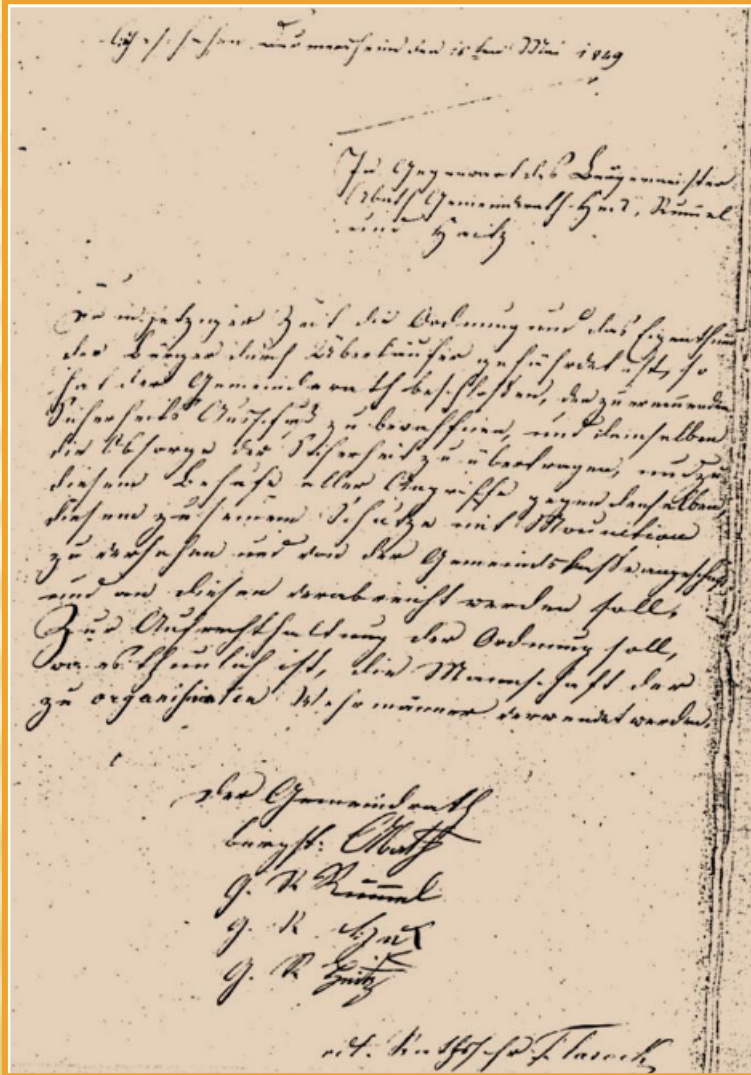 Geschehen Durmersheim den 15ten Mai 1849
In Gegenwart des Bürgermeister
Abath Gemeinderath Heck, Rummel
und Haitz
Da in jetziger Zeit die Ordnung und das Eigenthum
der Bürger durch Überläufer gefährdet ist, so
hat der Gemeinderath beschloßen, den zu ernennenden
Sicherheits Ausschuß zu bewaffnen, und demselben
die Obsorge der Sicherheit zu übertragen, und zu
diesem Behufe aller Angriffe gegen denselben,
diesem zu seinem Schutze mit Mounition
zu versehen und von der Gemeindskaße angeschafft
und an diesen verabreicht werden soll.
Zur Aufrechthaltung der Ordnung soll,
wo es thunlich ist, die Mannschaft der
zu organisirten Wehrmänner verwendet werden.
Der Gemeindrath
Bürgst: Abath
G. R Rummel
G. R Heck
G. R Haitz
vdt. Rathsschr